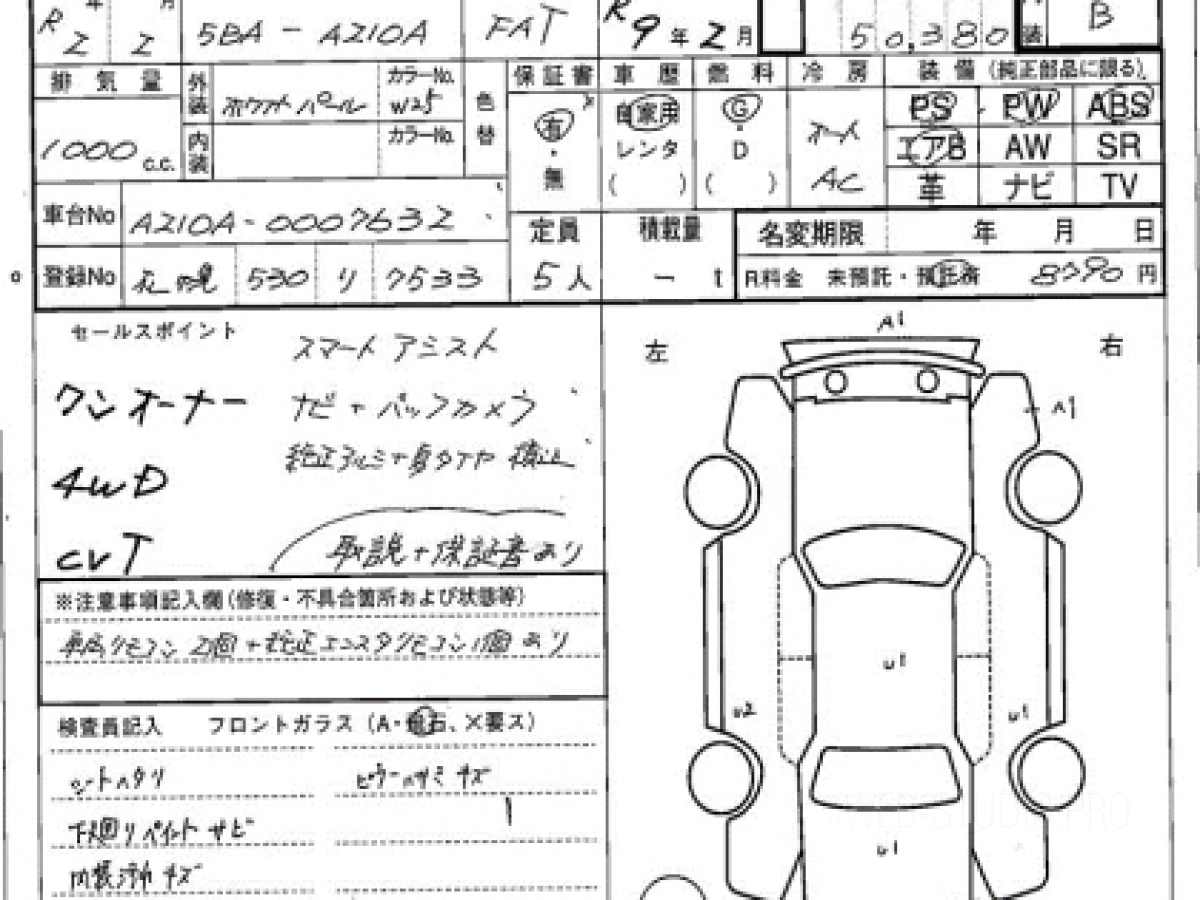 R 2 年 2 月 5BA - A210A FAT R9年2月 50,380 内装 B
排気量 外装 ホワイトパール カラーNo. W25 色替 保証書 車歴 燃料 冷房 装備 (純正部品に限る)
1000 c.c. 内装 カラーNo. 有・無 自家用 レンタ ( ) G・D ( ) オート AC
PS PW ABS
エアB AW SR
革 ナビ TV
車台No A210A-0007632 定員 積載量 名変期限 年 月 日
登録No 札幌 530 り 7533 5人 - t R料金 未預託・預託済 8790 円
セールスポイント
スマートアシスト
ワンオーナー ナビ+バックカメラ
純正アルミ+夏タイヤ積込
4WD
CVT 取説+保証書あり
※注意事項記入欄(修復・不具合箇所および状態等)
車両リモコン2個+純正エンスタリモコン1個あり
検査員記入 フロントガラス (A・飛石、×要ス)
シートハタリ ピラーハサミキズ
下廻りペイントサビ
内装汚れキズ
左 右
A1
A1
U1
U2 U1
U1
WEB STUDIO PRO